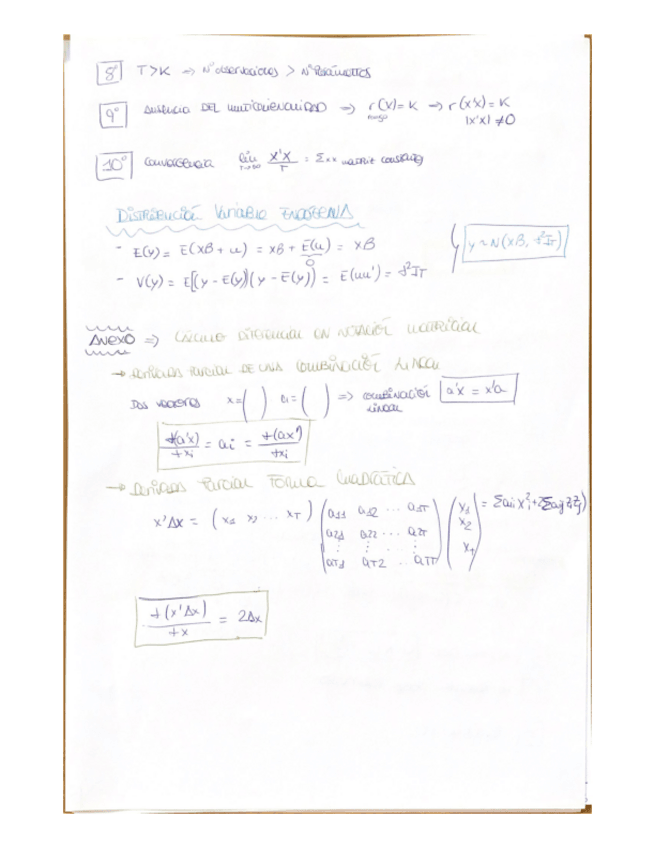 8º T>K => Nº observaciones > Nº Parámetros
9º Ausencia DEL multicolinealidad => r(X) = K => r(x'x) = K
rango |x'x| ≠ 0
10º convergencia lim T→∞ X'X/T = Σxx matriz constante
Distribución Variable Endógena
- E(y) = E(xB + u) = xB + E(u) = xB
0
y ~ N(xB, σ²IT)
- V(y) = E[(y - E(y))(y - E(y)) = E(uu') = σ²IT
Anexo => Cálculo diferencial en notación matricial
→ Derivada parcial DE una combinación lineal
Dos vectores x = ( ) a = ( ) => combinación lineal a'x = x'a
∂(a'x)/∂xi = ai = ∂(ax')/∂xi
→ Derivada Parcial Forma Cuadrática
x'Ax = (x1 x2 ... xT) (a11 a12 ... a1T
a21 a22 ... a2T
aT1 aT2 ... aTT) (x1
x2
xT)
∂(x'Ax)/∂x = 2Ax